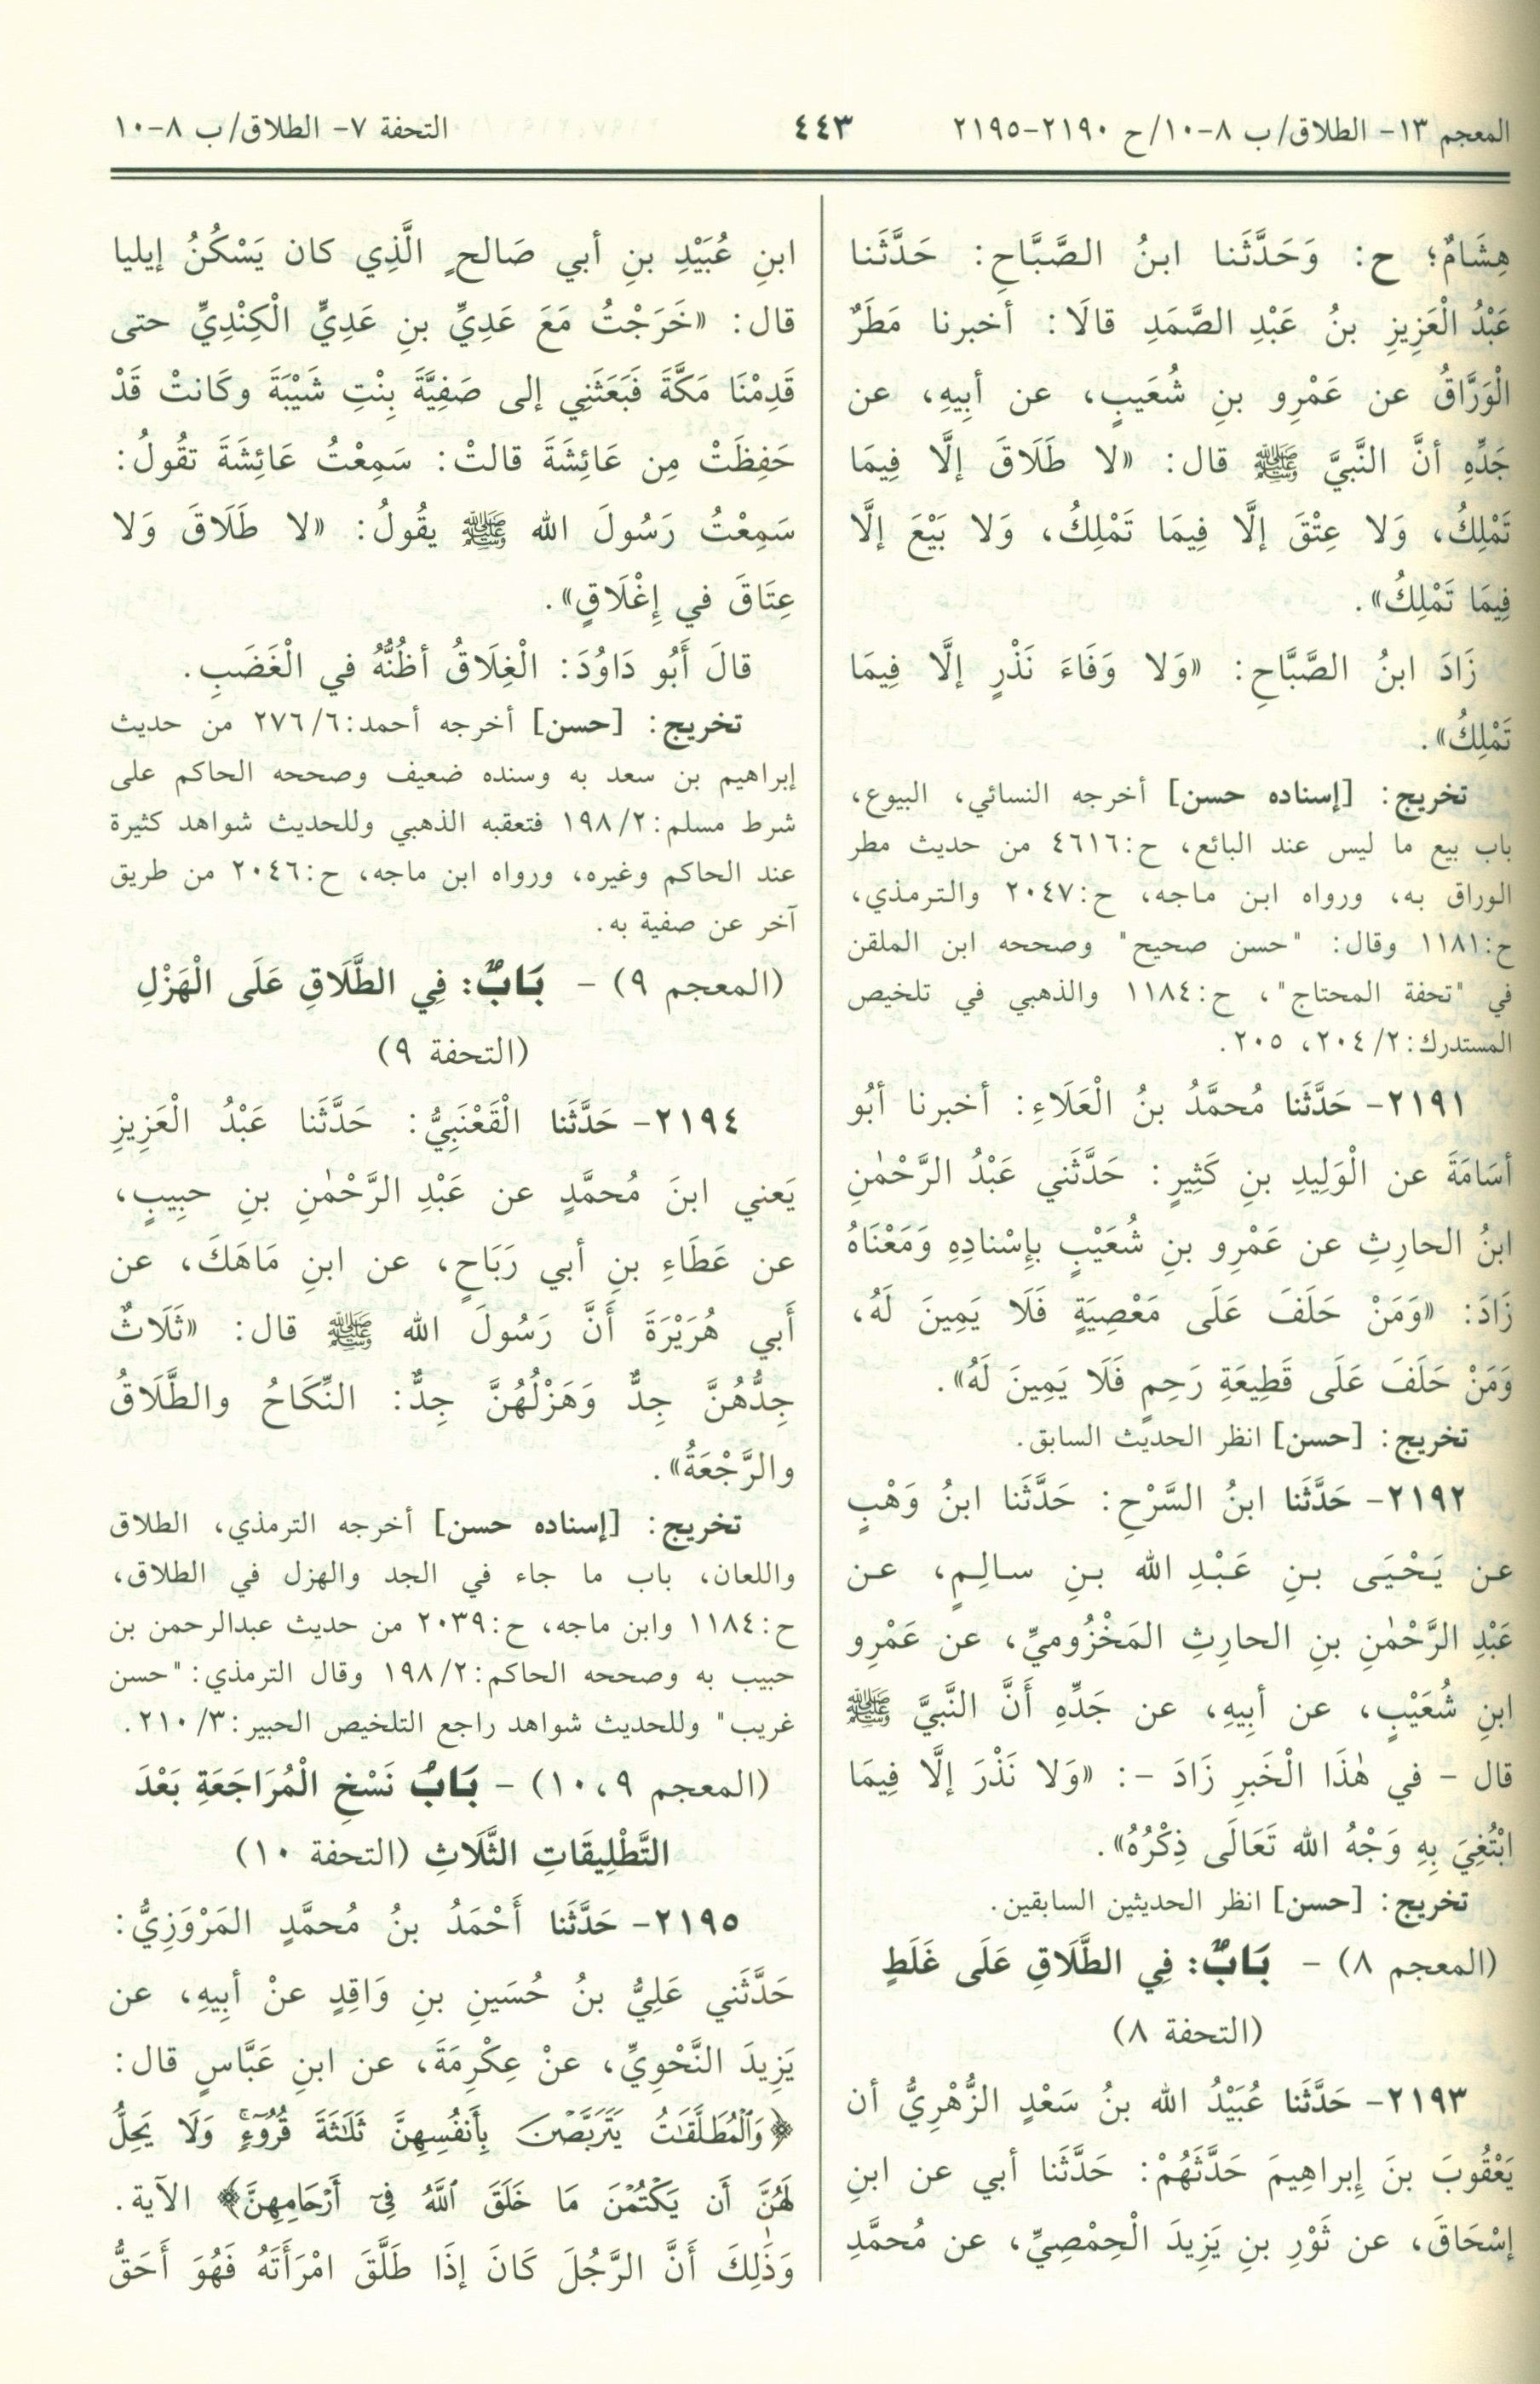 المعجم ١٣- الطلاق/ ب ٨-١٠/ ح ٢١٩٠-٢١٩٥
٤٤٣
التحفة ٧- الطلاق/ ب ٨-١٠
هِشَامٌ؛ ح: وَحَدَّثَنا ابنُ الصَّبَّاحِ: حَدَّثَنا
عَبْدُ الْعَزِيزِ بنُ عَبْدِ الصَّمَدِ قالَا: أخبرنا مَطَرٌ
الْوَرَّاقُ عن عَمْرِو بنِ شُعَيبٍ، عن أبِيهِ، عن
جَدِّهِ أنَّ النَّبيَّ ﷺ قال: «لا طَلَاقَ إلَّا فِيمَا
تَمْلِكُ، وَلا عِتْقَ إلَّا فِيمَا تَمْلِكُ، وَلا بَيْعَ إلَّا
فِيمَا تَمْلِكُ».
زَادَ ابنُ الصَّبَّاحِ: «وَلا وَفَاءَ نَذْرٍ إلَّا فِيمَا
تَمْلِكُ».
تخريج: [إسناده حسن] أخرجه النسائي، البيوع،
باب بيع ما ليس عند البائع، ح:٤٦١٦ من حديث مطر
الوراق به، ورواه ابن ماجه، ح:٢٠٤٧ والترمذي،
ح:١١٨١ وقال: "حسن صحيح" وصححه ابن الملقن
في "تحفة المحتاج"، ح:١١٨٤ والذهبي في تلخيص
المستدرك:٢/ ٢٠٤، ٢٠٥.
٢١٩١- حَدَّثَنا مُحمَّدُ بنُ الْعَلَاءِ: أخبرنا أبُو
أسَامَةَ عن الْوَلِيدِ بنِ كَثِيرٍ: حَدَّثَني عَبْدُ الرَّحْمٰنِ
ابنُ الحارِثِ عن عَمْرِو بنِ شُعَيْبٍ بإِسْنادِهِ وَمَعْنَاهُ
زَادَ: «وَمَنْ حَلَفَ عَلَى مَعْصِيَةٍ فَلَا يَمِينَ لَهُ،
وَمَنْ حَلَفَ عَلَى قَطِيعَةِ رَحِمٍ فَلَا يَمِينَ لَهُ».
تخريج: [حسن] انظر الحديث السابق.
٢١٩٢- حَدَّثَنا ابنُ السَّرْحِ: حَدَّثَنا ابنُ وَهْبٍ
عن يَحْيَى بنِ عَبْدِ الله بنِ سالِمٍ، عن
عَبْدِ الرَّحْمٰنِ بنِ الحارِثِ المَخْزُوميِّ، عن عَمْرِو
ابنِ شُعَيْبٍ، عن أبِيهِ، عن جَدِّهِ أَنَّ النَّبيَّ ﷺ
قال - في هٰذَا الْخَبرِ زَادَ -: «وَلا نَذْرَ إلَّا فِيمَا
ابْتُغِيَ بِهِ وَجْهُ الله تَعَالَى ذِكْرُهُ».
تخريج: [حسن] انظر الحديثين السابقين.
(المعجم ٨) - بَابٌ: فِي الطَّلَاقِ عَلَى غَلَطٍ
(التحفة ٨)
٢١٩٣- حَدَّثَنا عُبَيْدُ الله بنُ سَعْدٍ الزُّهْرِيُّ أن
يَعْقُوبَ بنَ إِبراهِيمَ حَدَّثَهُمْ: حَدَّثَنا أبي عن ابنِ
إسْحَاقَ، عن ثَوْرِ بنِ يَزِيدَ الْحِمْصِيِّ، عن مُحمَّدِ
ابنِ عُبَيْدِ بنِ أبي صَالحٍ الَّذِي كان يَسْكُنُ إيليا
قال: «خَرَجْتُ مَعَ عَدِيِّ بنِ عَدِيٍّ الْكِنْدِيِّ حتى
قَدِمْنَا مَكَّةَ فَبَعَثَنِي إلى صَفِيَّةَ بِنْتِ شَيْبَةَ وكَانتْ قَدْ
حَفِظَتْ مِن عَائِشَةَ قالتْ: سَمِعْتُ عَائِشَةَ تقُولُ:
سَمِعْتُ رَسُولَ الله ﷺ يقُولُ: «لا طَلَاقَ وَلا
عِتَاقَ في إِغْلَاقٍ».
قالَ أَبُو دَاوُدَ: الْغِلَاقُ أظُنُّهُ في الْغَضَبِ.
تخريج: [حسن] أخرجه أحمد:٦/ ٢٧٦ من حديث
إبراهيم بن سعد به وسنده ضعيف وصححه الحاكم على
شرط مسلم:٢/ ١٩٨ فتعقبه الذهبي وللحديث شواهد كثيرة
عند الحاكم وغيره، ورواه ابن ماجه، ح:٢٠٤٦ من طريق
آخر عن صفية به.
(المعجم ٩) - بَابٌ: فِي الطَّلَاقِ عَلَى الْهَزْلِ
(التحفة ٩)
٢١٩٤- حَدَّثَنا الْقَعْنَبِيُّ: حَدَّثَنا عَبْدُ الْعَزِيزِ
يَعني ابنَ مُحمَّدٍ عن عَبْدِ الرَّحْمٰنِ بنِ حبِيبٍ،
عن عَطَاءِ بنِ أبي رَبَاحٍ، عن ابنِ مَاهَكَ، عن
أَبي هُرَيْرَةَ أَنَّ رَسُولَ الله ﷺ قال: «ثَلَاثٌ
جِدُّهُنَّ جِدٌّ وَهَزْلُهُنَّ جِدٌّ: النِّكَاحُ والطَّلَاقُ
والرَّجْعَةُ».
تخريج: [إسناده حسن] أخرجه الترمذي، الطلاق
واللعان، باب ما جاء في الجد والهزل في الطلاق،
ح:١١٨٤ وابن ماجه، ح:٢٠٣٩ من حديث عبدالرحمن بن
حبيب به وصححه الحاكم:٢/ ١٩٨ وقال الترمذي: "حسن
غريب" وللحديث شواهد راجع التلخيص الحبير:٣/ ٢١٠.
(المعجم ٩، ١٠) - بَابُ نَسْخِ الْمُرَاجَعَةِ بَعْدَ
التَّطْلِيقَاتِ الثَّلَاثِ (التحفة ١٠)
٢١٩٥- حَدَّثَنا أَحْمَدُ بنُ مُحمَّدٍ المَرْوَزِيُّ:
حَدَّثَني عَلِيُّ بنُ حُسَينِ بنِ وَاقِدٍ عنْ أبِيهِ، عن
يَزِيدَ النَّحْوِيِّ، عنْ عِكْرِمَةَ، عن ابنِ عَبَّاسٍ قال:
﴿وَٱلْمُطَلَّقَٰتُ يَتَرَبَّصْنَ بِأَنفُسِهِنَّ ثَلَٰثَةَ قُرُوٓءٍۚ وَلَا يَحِلُّ
لَهُنَّ أَن يَكْتُمْنَ مَا خَلَقَ ٱللَّهُ فِىٓ أَرْحَامِهِنَّ﴾ الآية.
وَذٰلِكَ أَنَّ الرَّجُلَ كَانَ إذَا طَلَّقَ امْرَأَتَهُ فَهُوَ أَحَقُّ